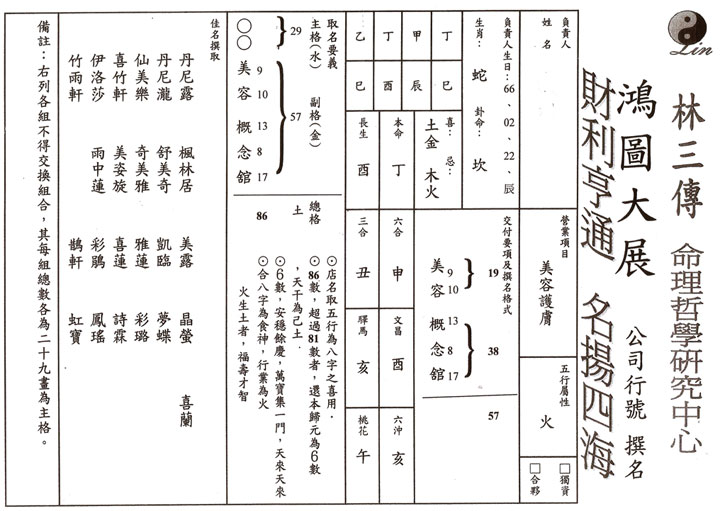 Lin
林三傳 命理哲學研究中心
鴻圖大展 公司行號 撰名
財利亨通 名揚四海
負責人
姓名
營業項目
美容護膚
五行屬性
火
□獨資
□合夥
負責人生日：66、02、22、辰
生肖：蛇 卦命：坎
交付要項及撰名格式
美 9
容 10
19
概 13
念 8
舘 17
38
57
喜：土金
忌：木火
丁巳
甲辰
丁酉
乙巳
本命 丁
長生 酉
六合 申
三合 丑
文昌 酉
驛馬 亥
六沖 亥
桃花 午
取名要義
主格(水) 副格(金) 總格
29 57 86
○○美容概念舘
9 10 13 8 17
土
⊙店名取五行為八字之喜用．
⊙86數，超過81數者，還本歸元為6數
，天干為己土．
⊙6數，安穩餘慶，萬寶集一門，天來天來
⊙合八字為食神，行業為火
火生土者，福壽才智
佳名撰取
丹尼露 楓林居 美露 晶螢 喜蘭
丹尼瀧 舒美奇 凱臨 夢蝶
仙美樂 奇美雅 雅蓮 彩璐
喜竹軒 美姿旋 喜蓮 詩霖
伊洛莎 雨中蓮 彩鵑 鳳瑤
竹雨軒 鵲軒 虹寶
備註：右列各組不得交換組合，其每組總數各為二十九畫為主格。